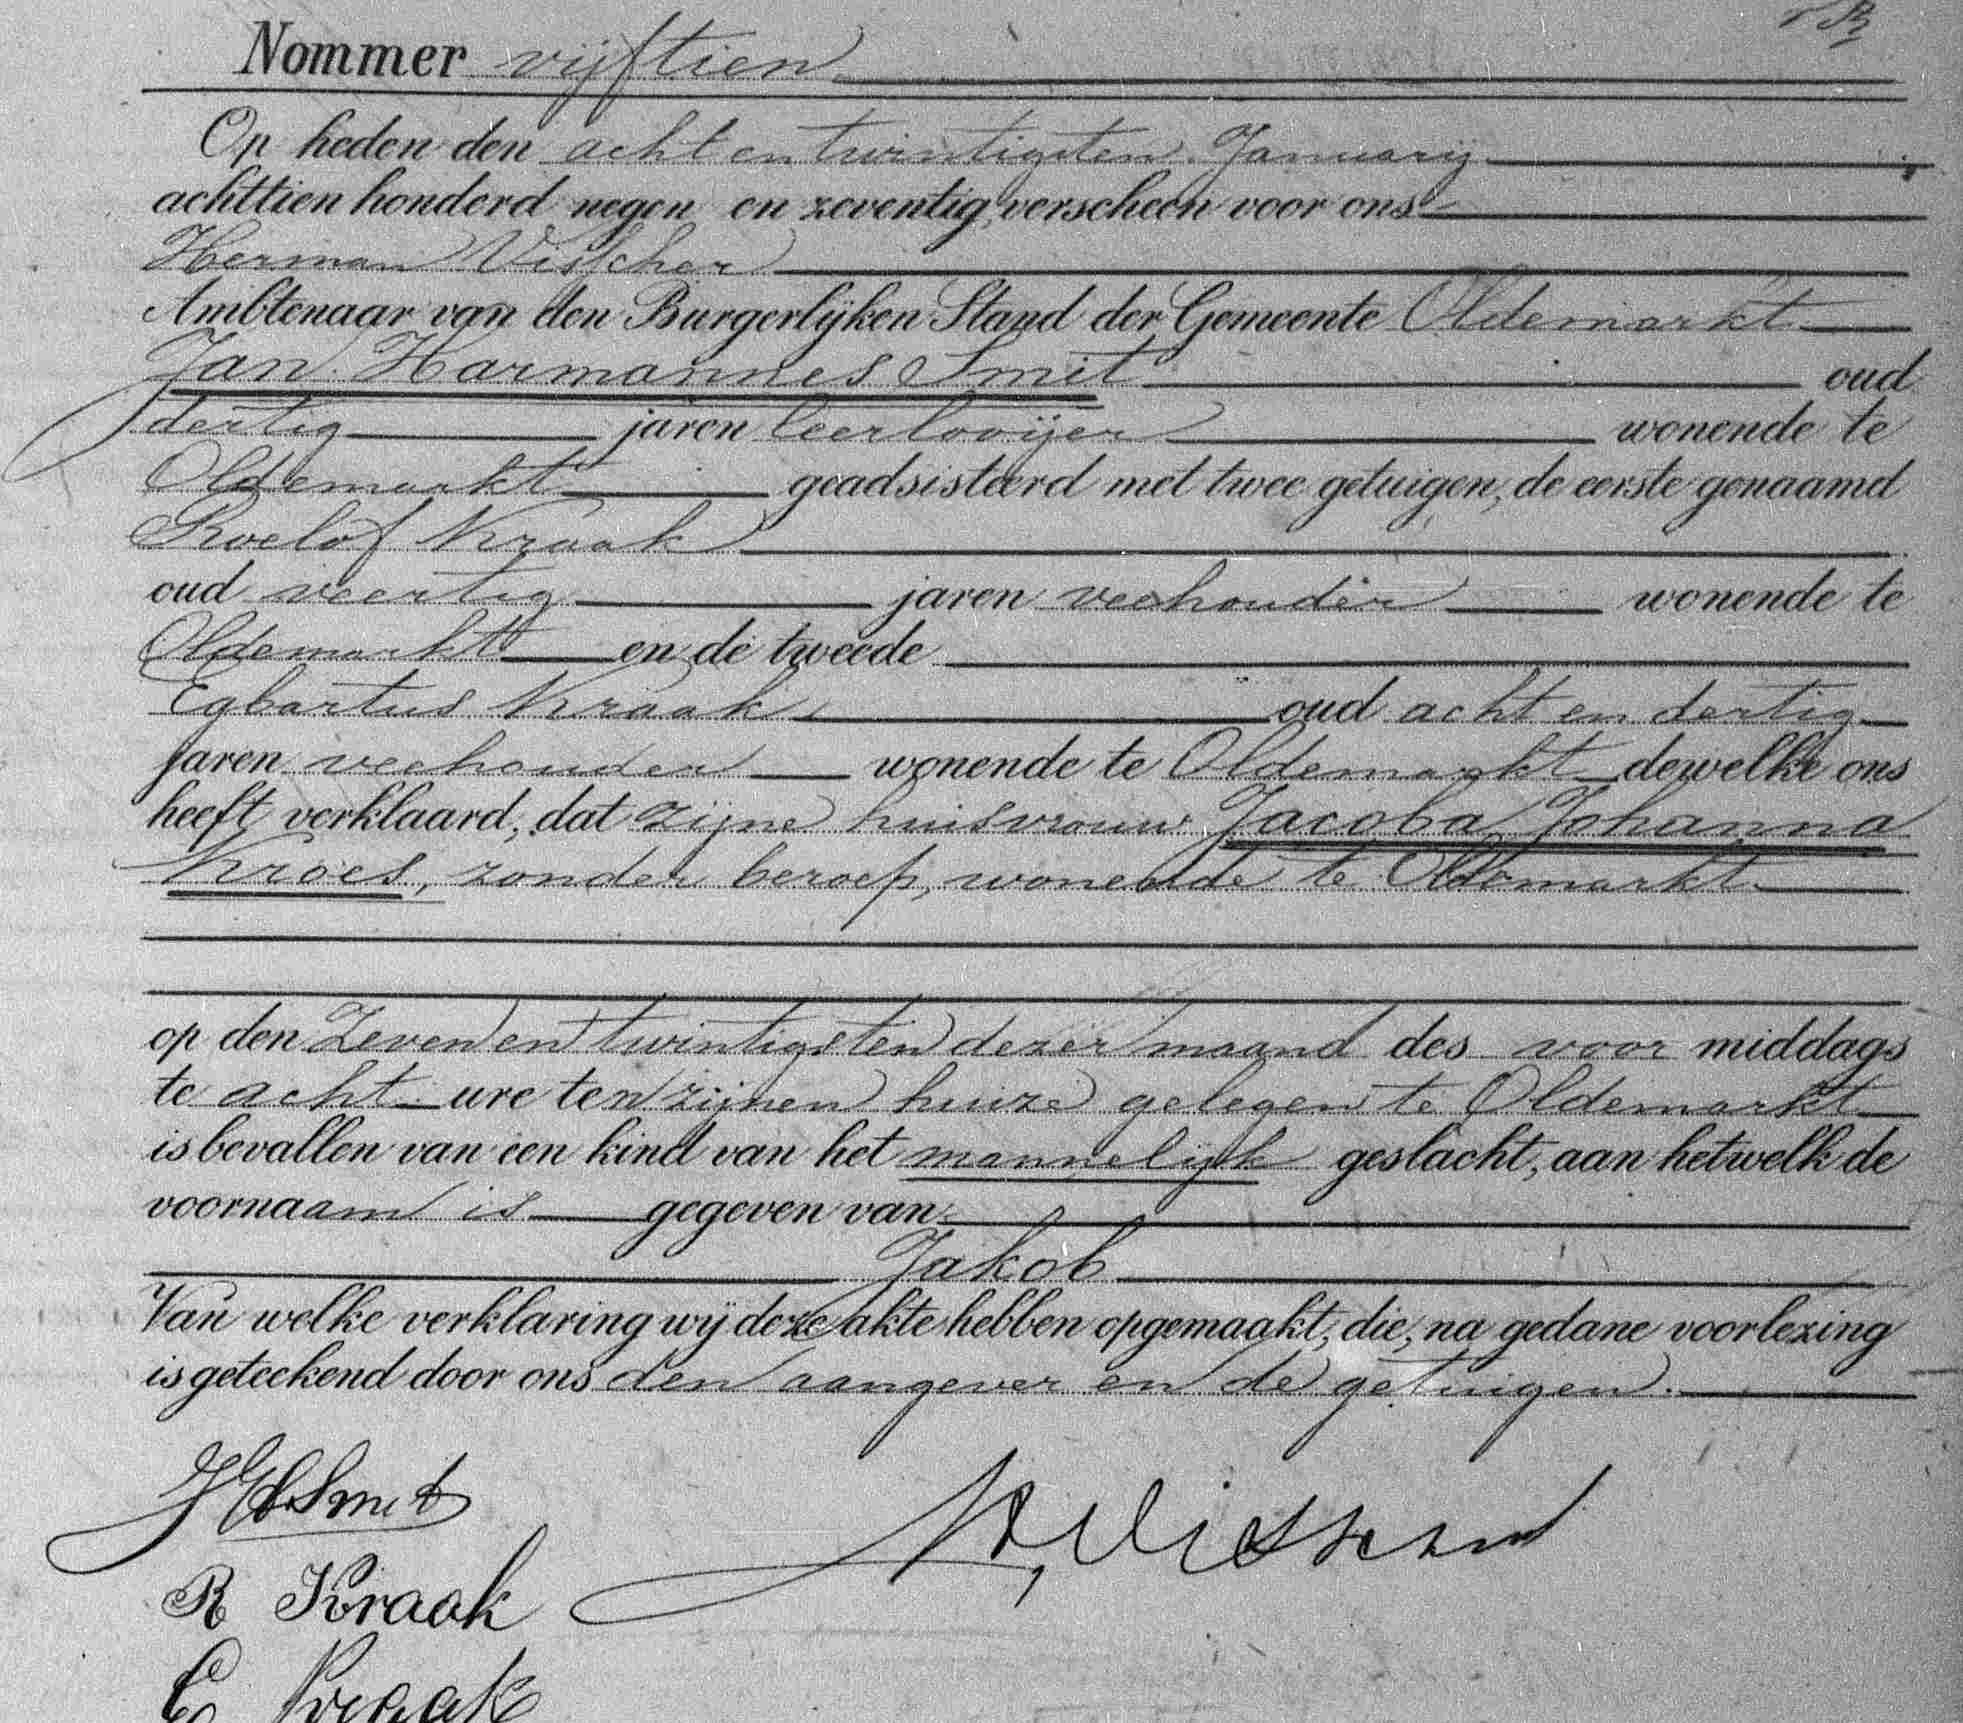 Nommer vijftien
Op heden den acht en twintigsten Januarij
achttien honderd negen en zeventig, verscheen voor ons
Herman Visscher
Ambtenaar van den Burgerlijken Stand der Gemeente Oldemarkt
Jan Harmannes Smit oud
dertig jaren leerlooijer wonende te
Oldemarkt geadsisteerd met twee getuigen, de eerste genaamd
Roelof Kraak
oud veertig jaren veehouder wonende te
Oldemarkt en de tweede
Egbartus Kraak oud acht en dertig
jaren veehouder wonende te Oldemarkt dewelke ons
heeft verklaard, dat zijne huisvrouw Jacoba Johanna
Kroes, zonder beroep, wonende te Oldemarkt
op den Zeven en twintigsten dezer maand des voor middags
te acht ure ten zijnen huize gelegen te Oldemarkt
is bevallen van een kind van het mannelijk geslacht, aan hetwelk de
voornaam is gegeven van
Jakob
Van welke verklaring wij deze akte hebben opgemaakt, die, na gedane voorlezing
is geteekend door ons den aangever en de getuigen.
JHSmit
H. Visscher
R Kraak
E Kraak